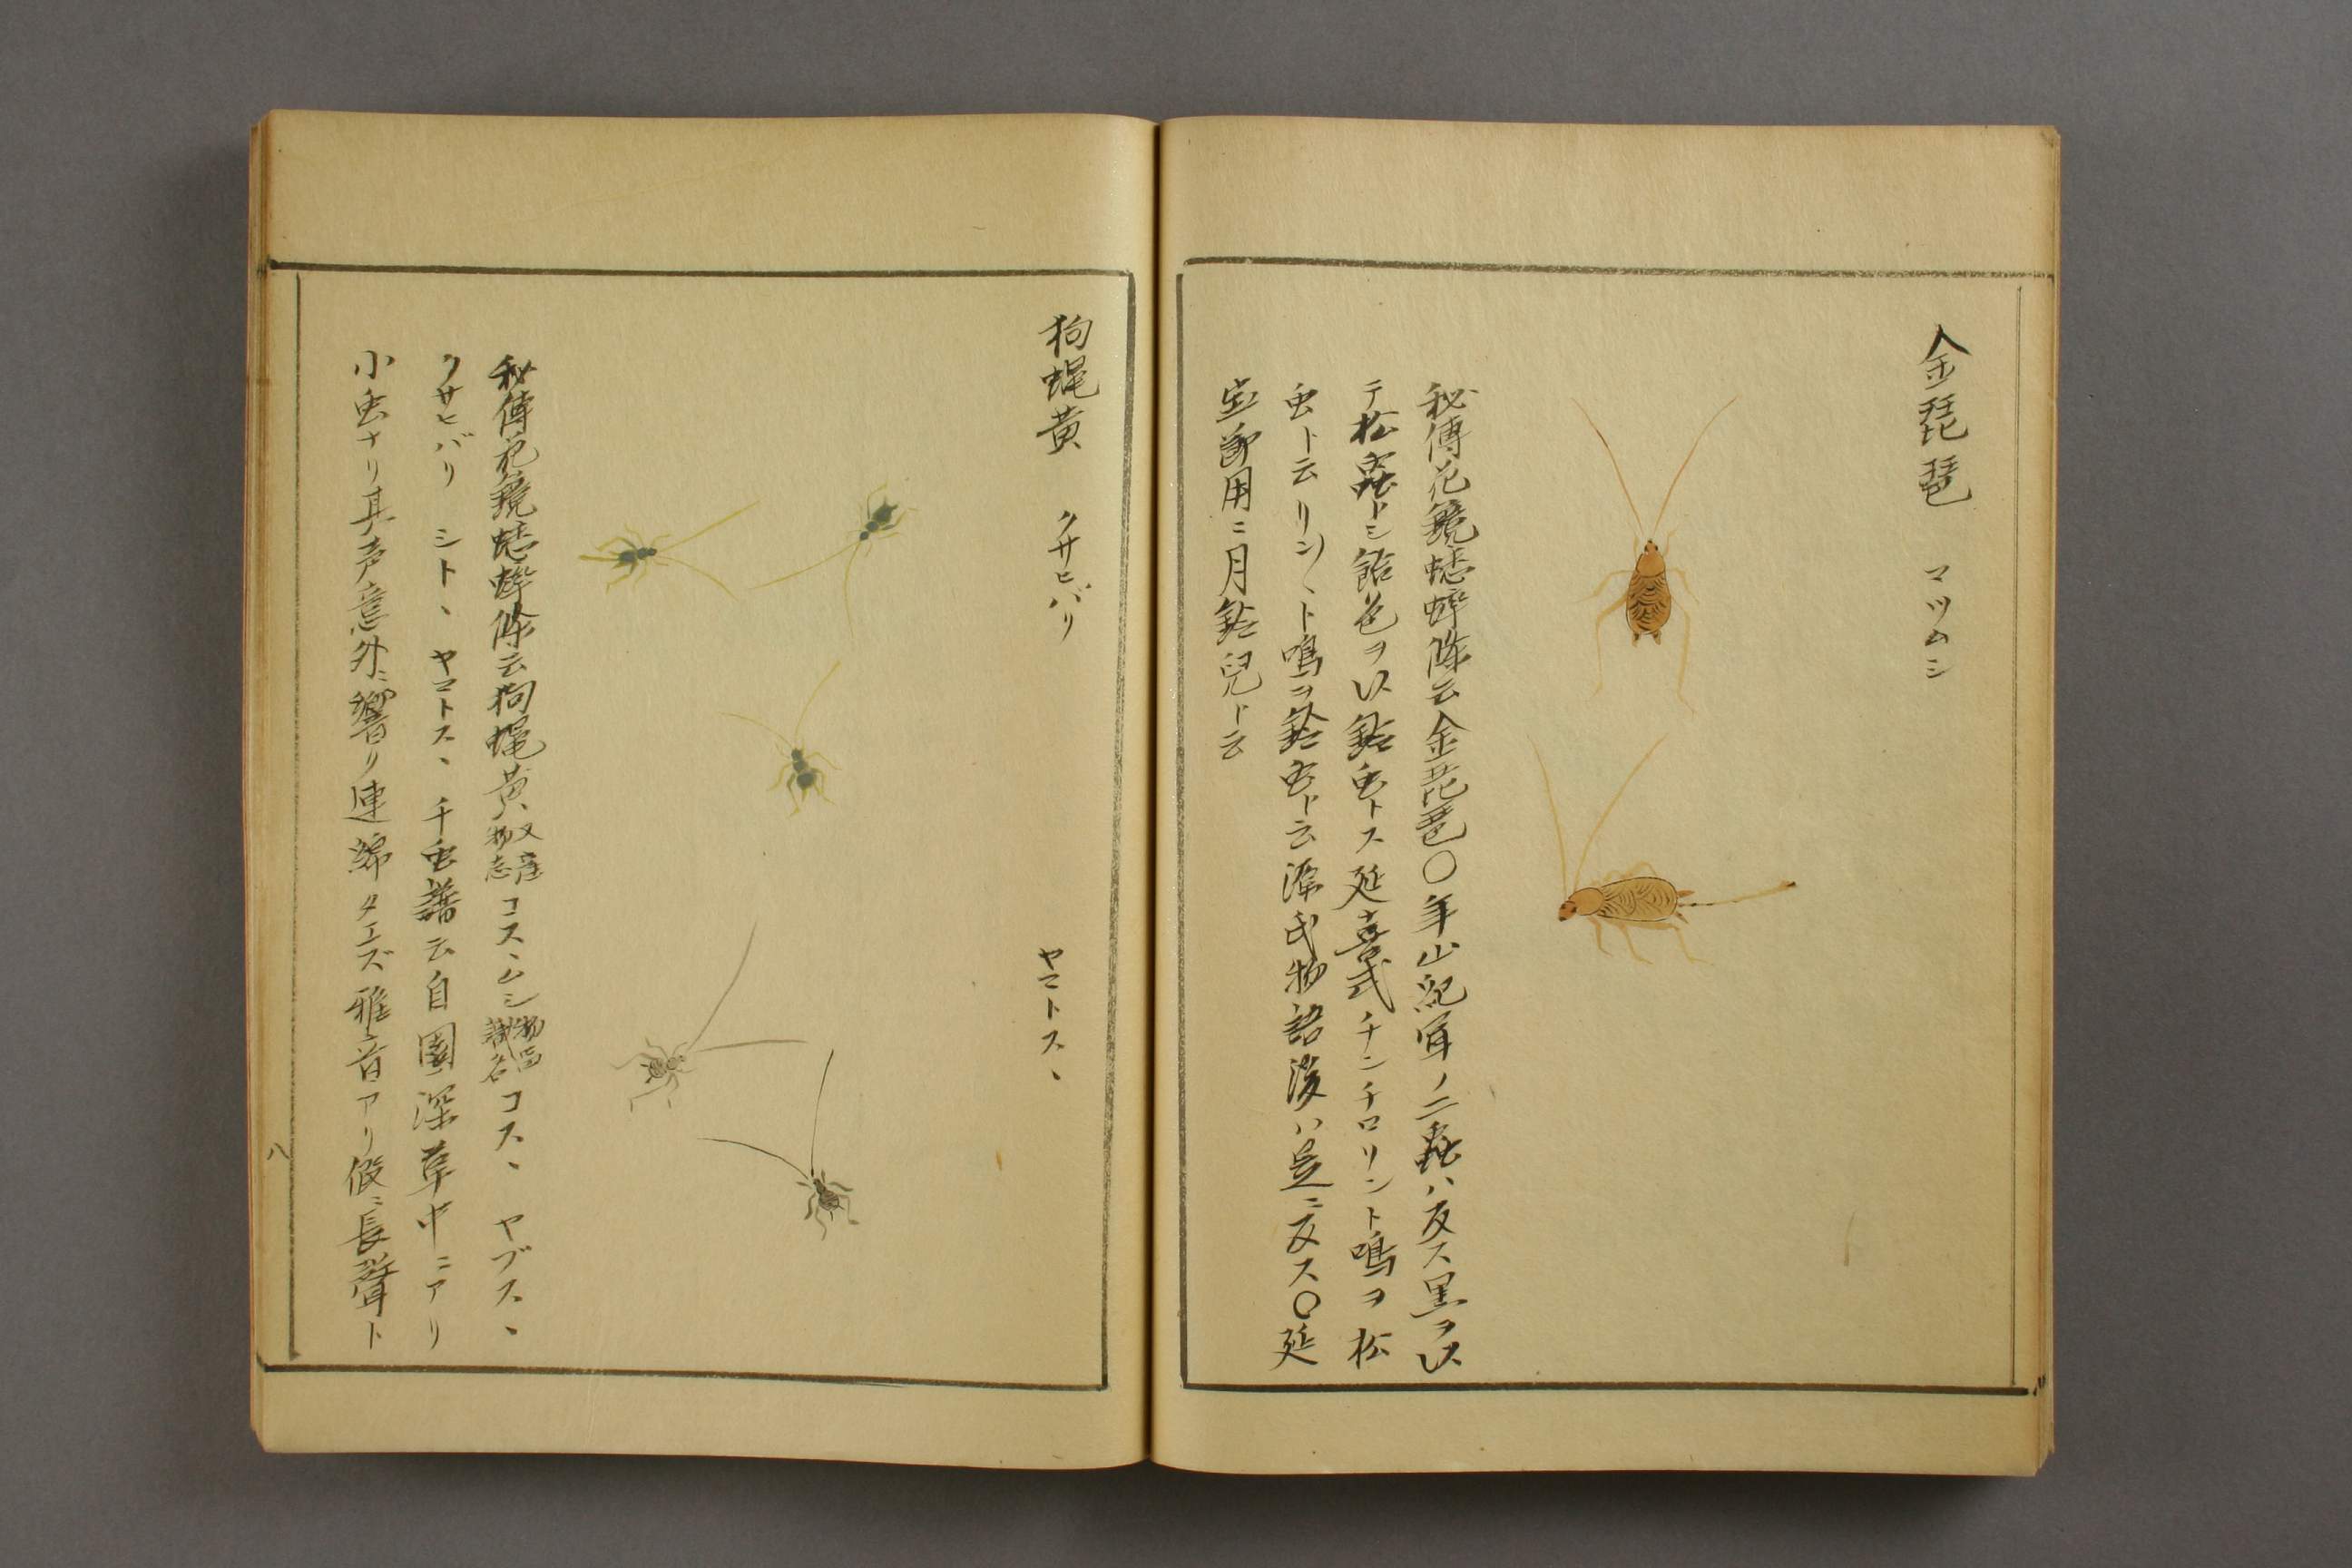 金琵琶　マツムシ
秘傳花鏡蟋蟀條云金琵琶〇年山紀聞ノ二蟲ハ反ス黒ヲ以
テ松蟲トシ飴色ヲ以鈴虫トス延喜式チンチロリント鳴ヲ松
虫ト云リン〳〵ト鳴ヲ鈴虫ト云源氏物語後ハ是ニ反ス〇延
宝節用ニ月鈴児ト云
狗蝿黄　クサヒバリ　ヤマトスヽ
秘傳花鏡蟋蟀條云狗蝿黄又産物志コスヽムシ物品識名コスヽ　ヤブスヽ
クサヒバリ　シトヽ　ヤマトスヽ　千虫譜云自園深草中ニアリ
小虫ナリ其声意外ニ響リ連綿タエズ雅音アリ仮ニ長聲ト
八